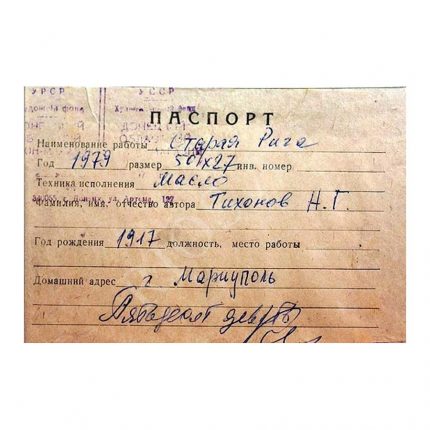 УРСР УССР
ПАСПОРТ
Наименование работы Старая Рига
Год 1979 размер 50х27 инв. номер
Техника исполнения Масло
Фамилия, имя, отчество автора Тихонов Н. Г.
Год рождения 1917 должность, место работы
Домашний адрес г. Мариуполь
Пятьдесят девять